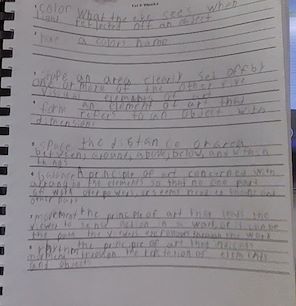 color what the eye sees when
light reflected off an object
hue: a colors name
shape an area clearly set off by
one or more of the other five
visual elements of art
form an element of art that
refers to an object with
dimensions
space the distance or area
between, around, above, below, and within
things
balance A principle of art concerned with
arranging the elements so that no one part
of work over powers, or seems heavier than any
other part
movement the principle of art that leads the
viewer to sense action in a work, or it can be
the path the viewers eye follows through the work
rhythm the principle of art that
movement through the repetition of elements
and objects